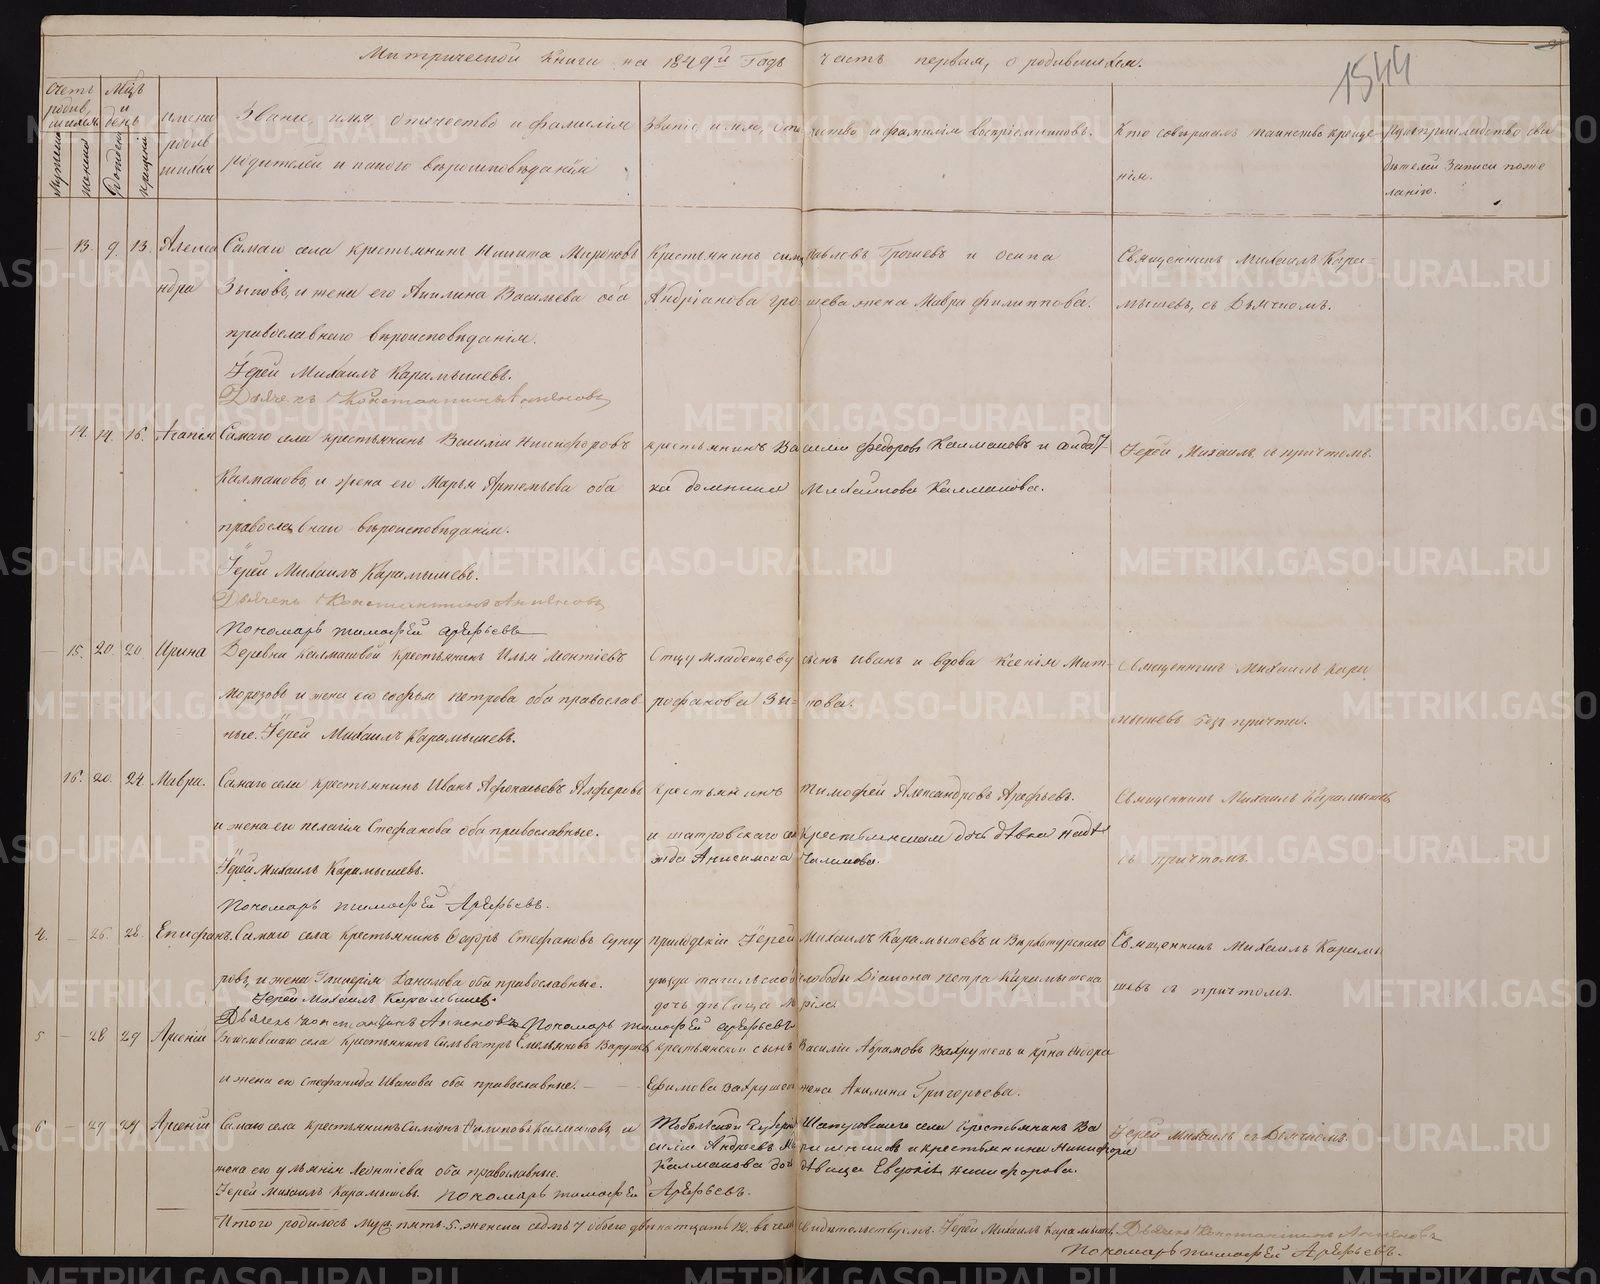 Метрической книги на 1849й Годъ часть первая, о родившихся.
1544
Счетъ родив-шихся Мцъ и день имена родив шихся Звание, имя, отчество и фамилія родителей и какого вѣроисповѣданія
Званіе, имя, отчество и фамилія воспріемниковъ.
Кто совершалъ таинство крещенія.
Рукоприкладство сви дѣтелей записи по же ланію.
мужеска женска рожденія крещенія
13. 9. 13. Алекса Самаго села крестьянинъ Никита Мироновъ Крестьянинъ Павловъ Грошевъ и Осипа Священникъ Михаилъ Кара-
ндра Зыковъ, и жена его Акилина Васильева оба Андріанова Грошева жена Мавра Филиппова. мышевъ, съ Дьячкомъ.
православнаго вѣроисповѣданія.
Іерей Михаилъ Карамышевъ.
Дьячекъ Константинъ
14. 14. 16. Агапія Самаго села крестьянинъ Василій Никифоровъ крестьянинъ Василій Федоровъ Калмаковъ и солдат Іерей Михаилъ съ причтомъ.
Калмаковъ, и жена его Марья Артемьева оба ка домника Михайлова Калмакова.
православнаго вѣроисповѣданія.
Іерей Михаилъ Карамышевъ.
Дьячекъ Константинъ
Пономарь Тимофей Арефьевъ
15. 20. 20. Ирина Деревни Калмаковой крестьянинъ Илья Леонтіевъ Отцу младенцеву сынъ Иванъ и вдова Ксенія Мит- Священникъ Михаилъ Кара
Морозовъ и жена его Софья Петрова оба православ- рофанова Зы-кова. мышевъ безъ причта.
ные. Іерей Михаилъ Карамышевъ.
16. 20. 24. Мавра. Самаго села крестьянинъ Иванъ Афонасьевъ Алферовъ Крестьянинъ Тимофей Александровъ Арефьевъ. Священникъ Михаилъ Карамышев
и жена его Пелагія Стефанова оба православные. и шатровскаго крестьянская дочь дѣвка Надѣ съ причтомъ.
Іерей Михаилъ Карамышевъ. жда Анисимова
Пономарь Тимофей Арефьевъ.
4. – 26. 28. Епифанъ. Самаго села крестьянинъ Стефановъ Сунгу приходскій Іерей Михаилъ Карамышевъ и Верхотурскаго Священникъ Михаилъ Карамы
ровъ, и жена Гликерія Данилова оба православные. уѣзда тагильской слободы Діакона Петра Карамышева шевъ съ причтомъ.
Іерей Михаилъ Карамышевъ. дочь дѣвица Марія.
Дьячекъ Константинъ Пономарь Тимофей Арефьевъ
5 – 28 29 Арсеній села крестьянинъ Сильвестръ Емельяновъ крестьянской сынъ Василій Абрамовъ Вахрушевъ и
и жена его Стефанида Иванова оба православные. Ефимова Вахрушева жена Акилина Григорьева.
6 – 29 29 Арсеній Самаго села крестьянинъ Симіонъ Филиповъ Калмаковъ, и Тобольской Губерніи Шатровскаго села крестьянинъ Ва Іерей Михаилъ съ Дьячкомъ.
силій Андреевъ и крестьянина Никифора
жена его Ульянія Леонтіева оба православные. Калмакова дочь дѣвица Евдокія Никифорова.
Іерей Михаилъ Карамышевъ. Пономарь Тимофей Арефьевъ.
Итого родилось муж. пять. 5. женска седмь 7 обоего двѣнатцать 12. въ чемъ свидѣтельствуемъ. Іерей Михаилъ Карамышевъ, Дьячекъ Константинъ
Пономарь Тимофей Арефьевъ.
METRIKI.GASO-URAL.RU